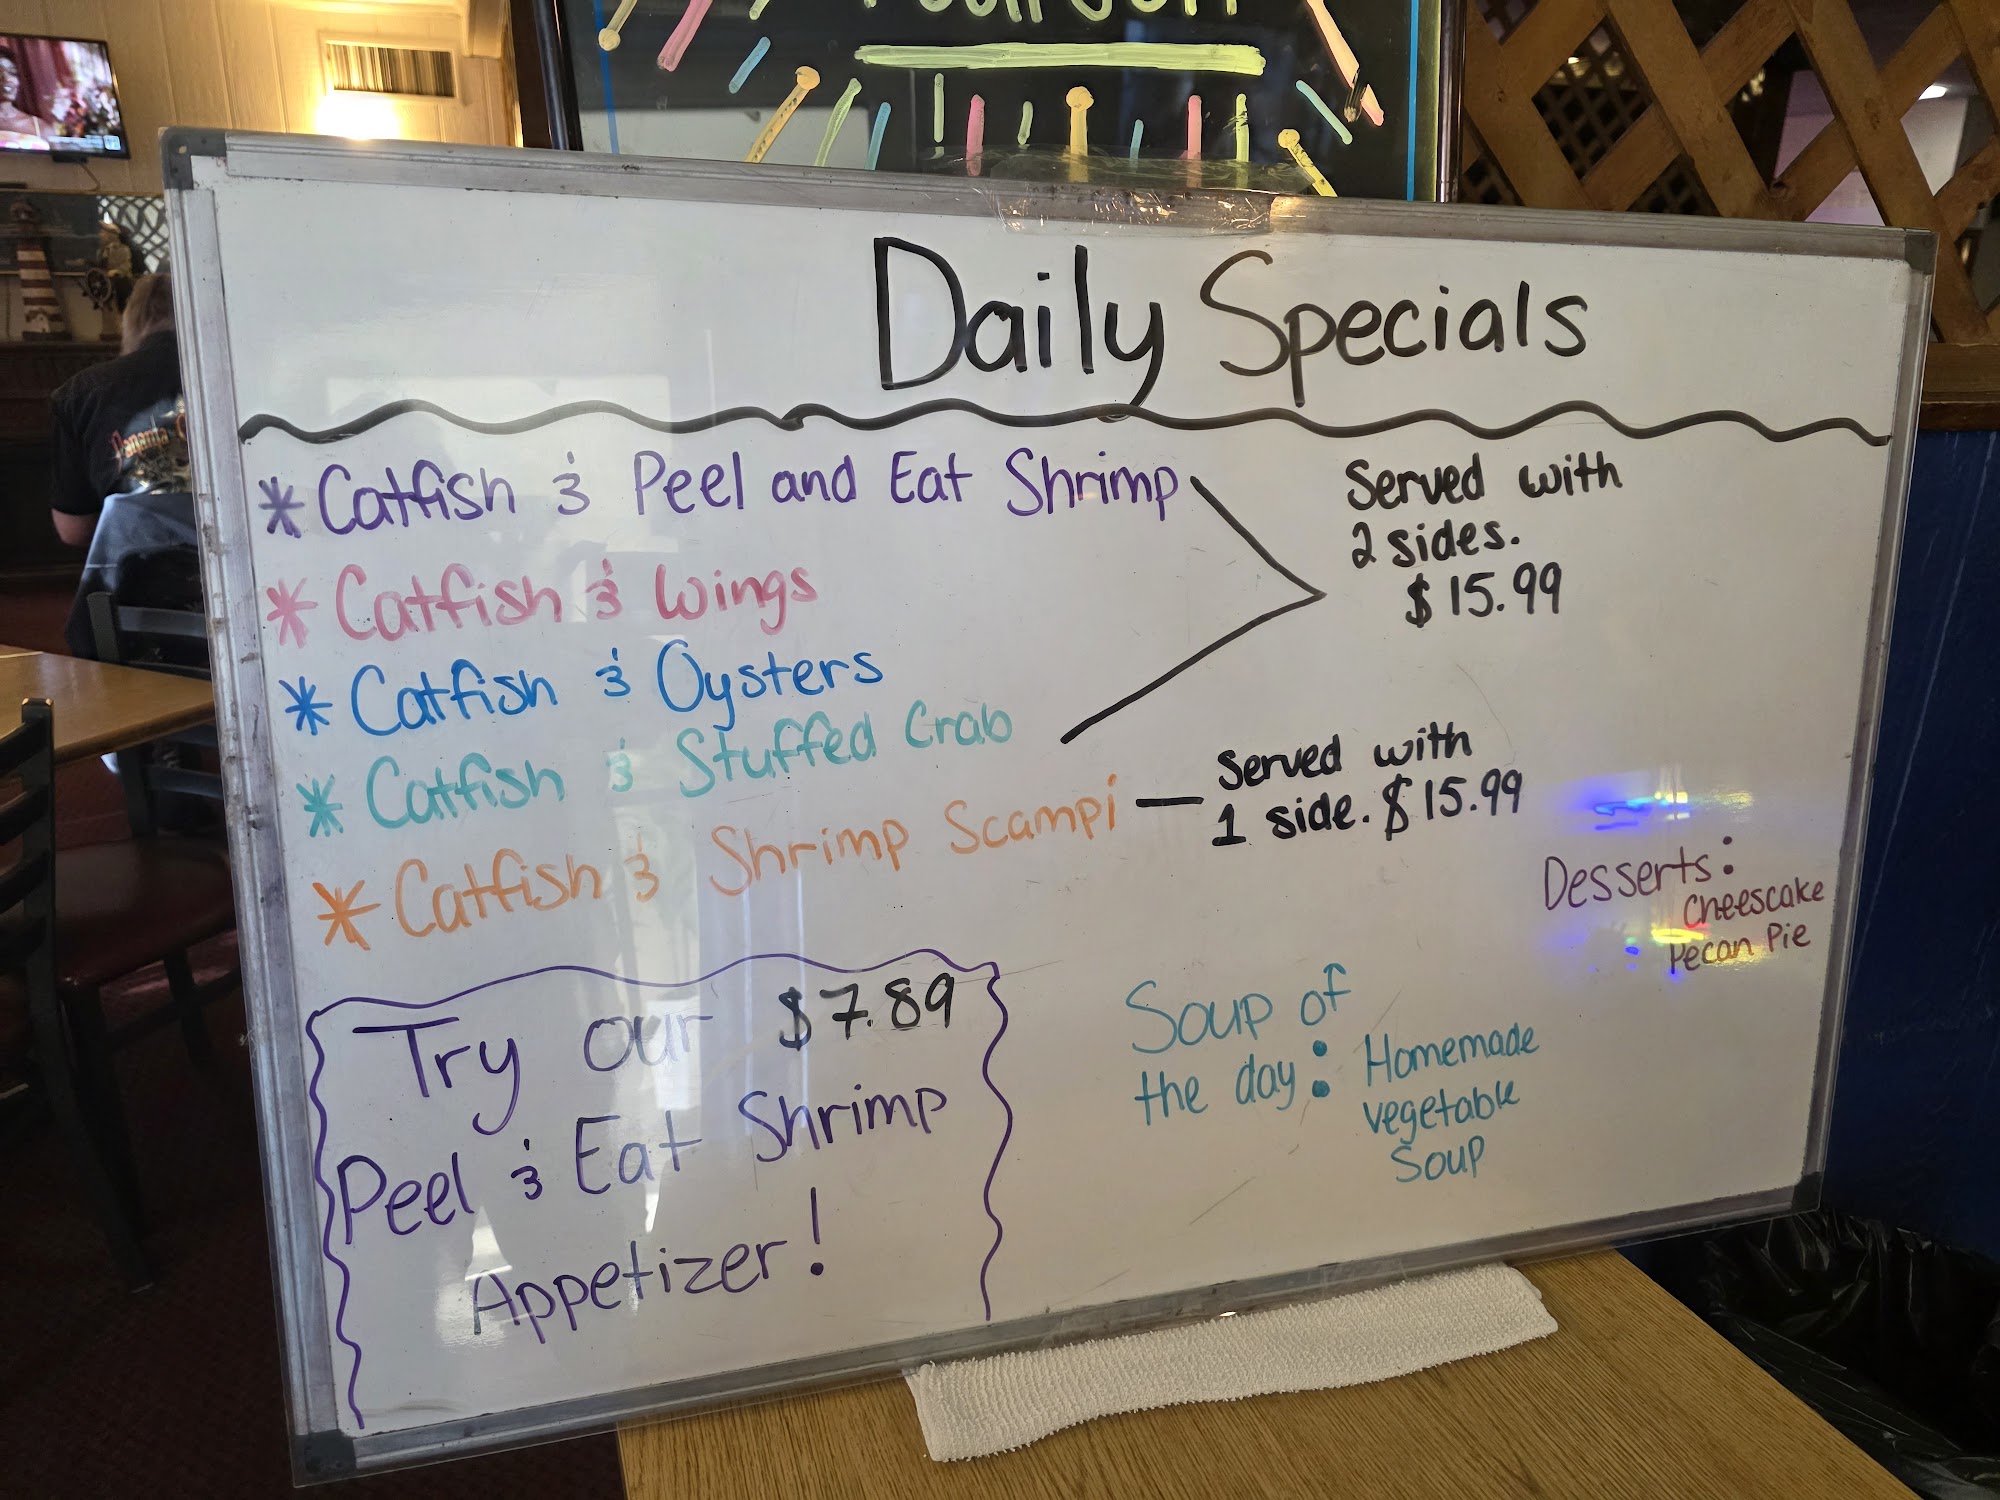 Daily Specials
* Catfish & Peel and Eat Shrimp
* Catfish & Wings
* Catfish & Oysters
* Catfish & Stuffed Crab
Served with
2 sides.
$15.99
* Catfish & Shrimp Scampi
Served with
1 side. $15.99
Desserts:
Cheescake
Pecan Pie
Try our $7.89
Peel & Eat Shrimp
Appetizer!
Soup of
the day: Homemade
vegetable
Soup